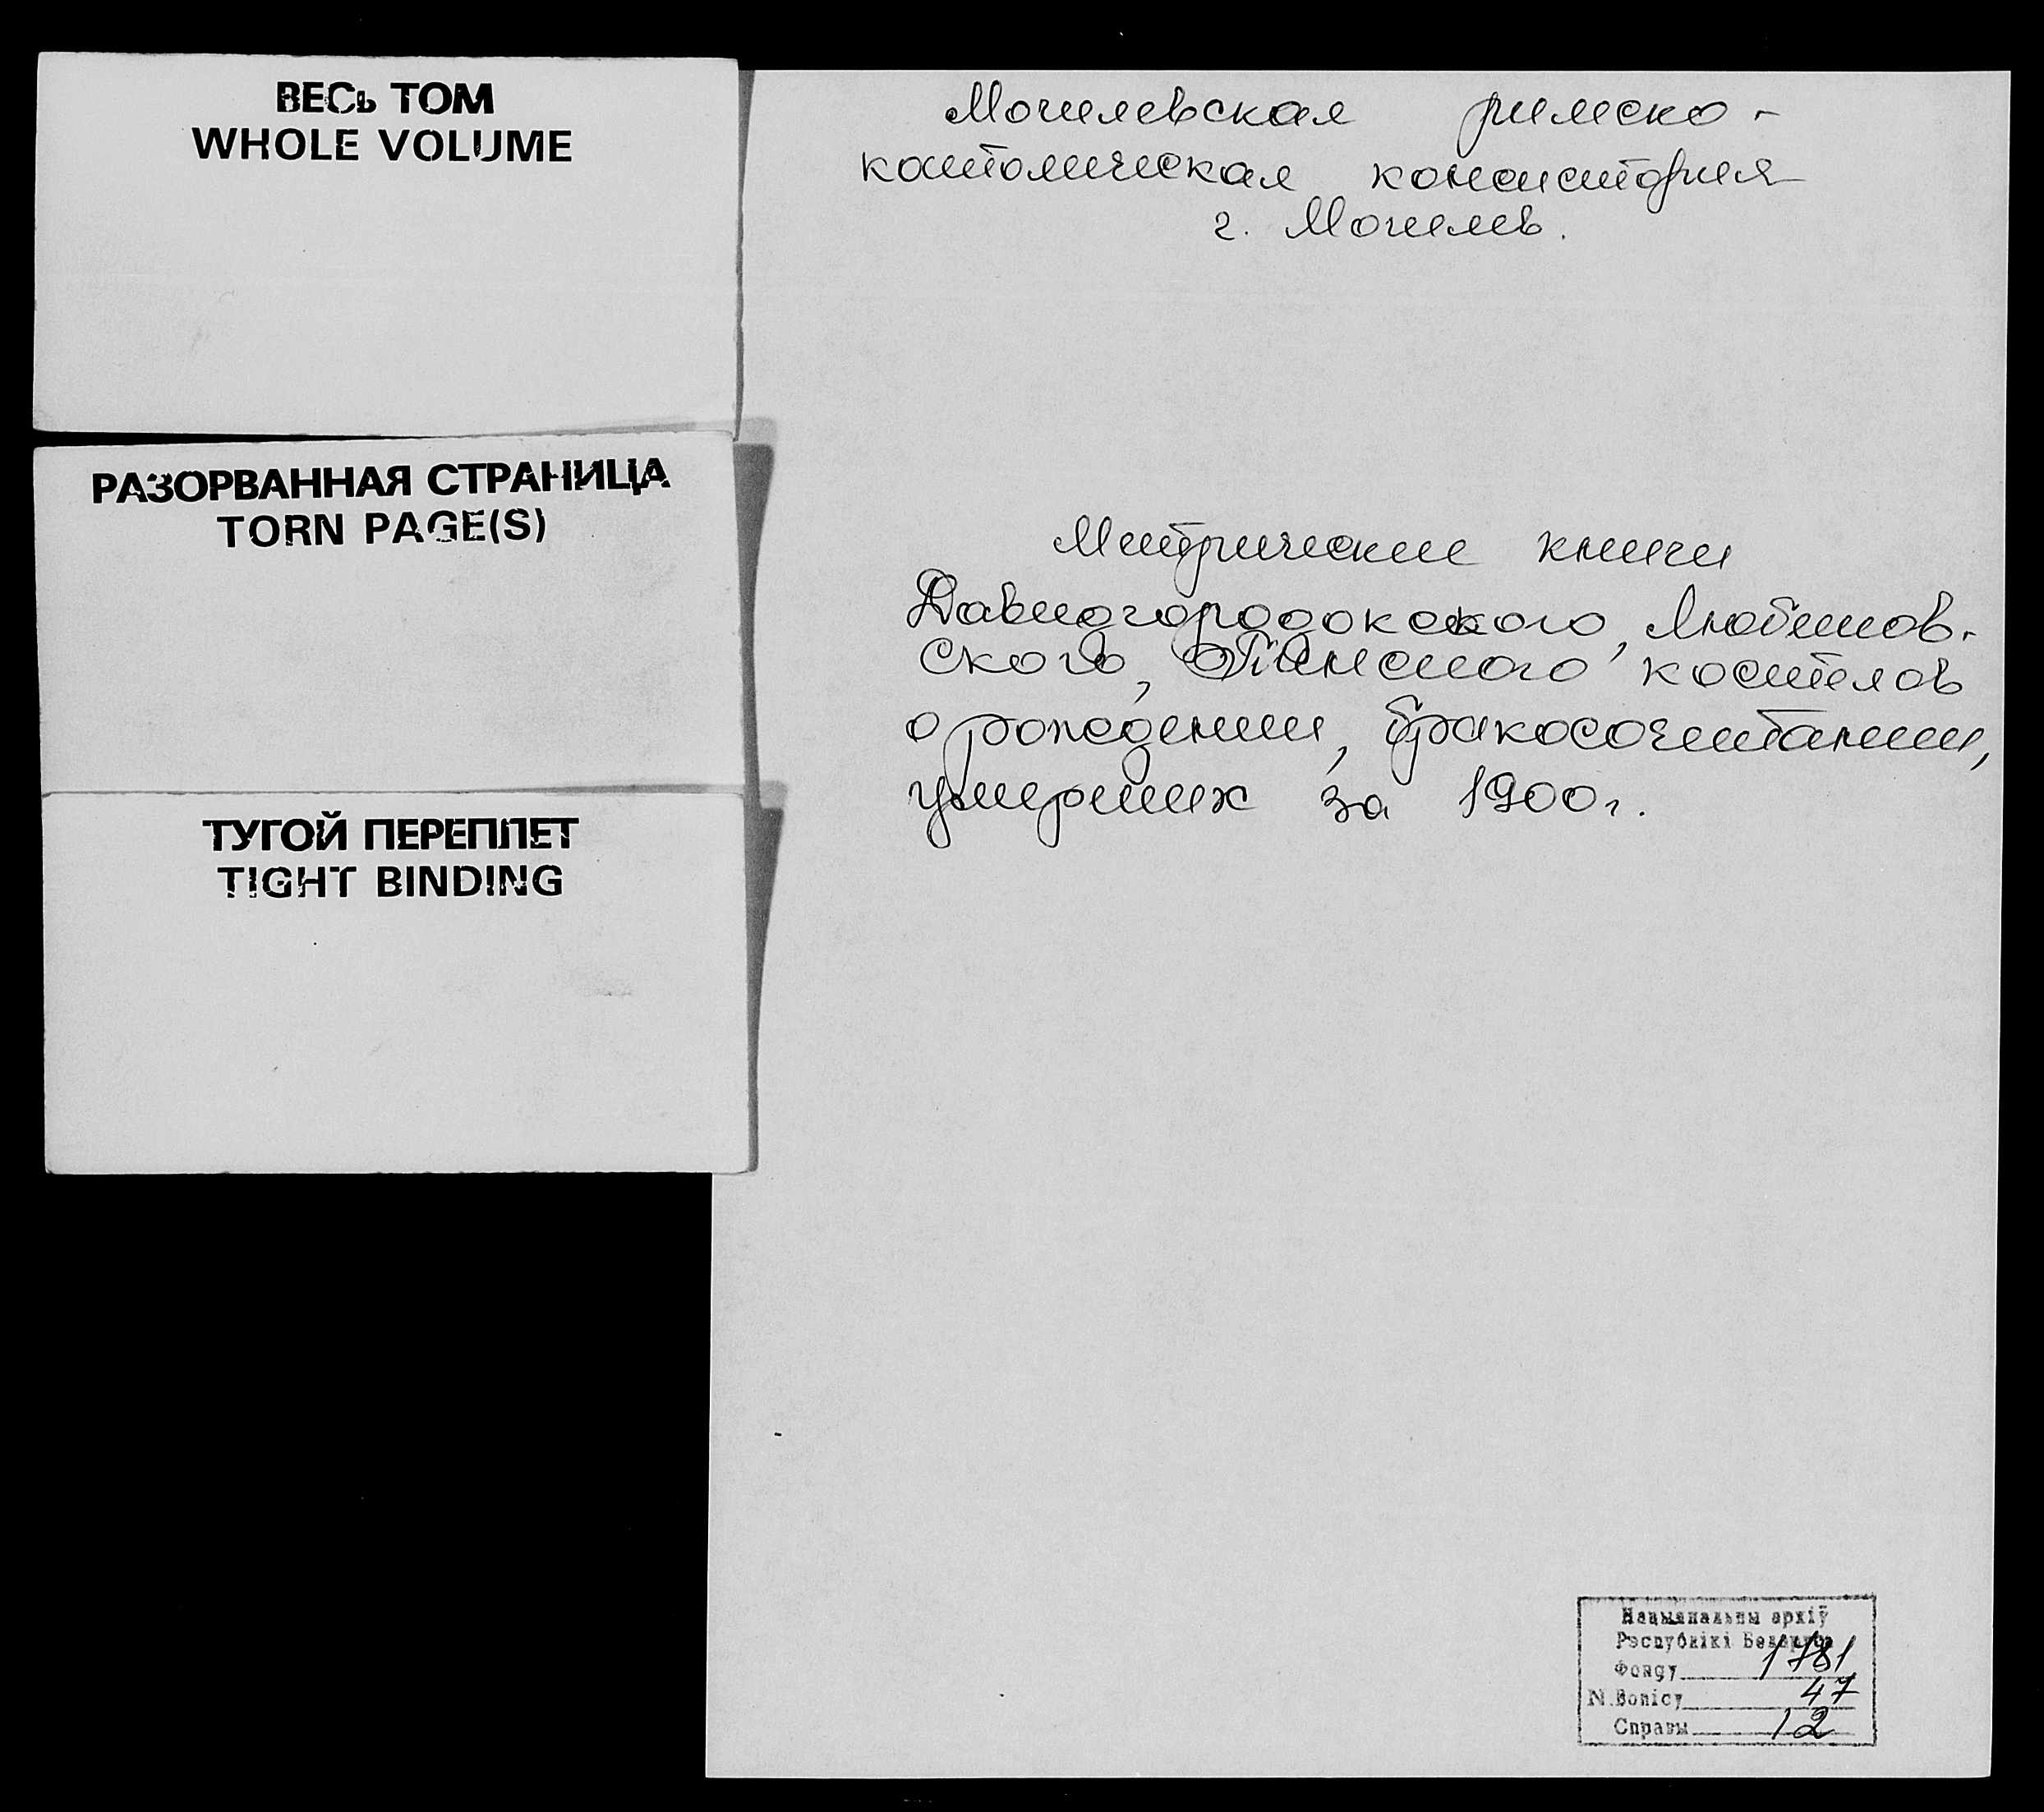 ВЕСЬ ТОМ
WHOLE VOLUME
РАЗОРВАННАЯ СТРАНИЦА
TORN PAGE(S)
ТУГОЙ ПЕРЕПЛЕТ
TIGHT BINDING
Могилевская римско-
католическая консистория
г. Могилев.
Метрические книги
Давидгородокского, Любешов-
ского, костелов
о рождении, бракосочетании,
умерших за 1900г.
Нацыянальны архіў
Рэспублікі Беларусь
Фонду 1781
N Вопісу 47
Справы 12